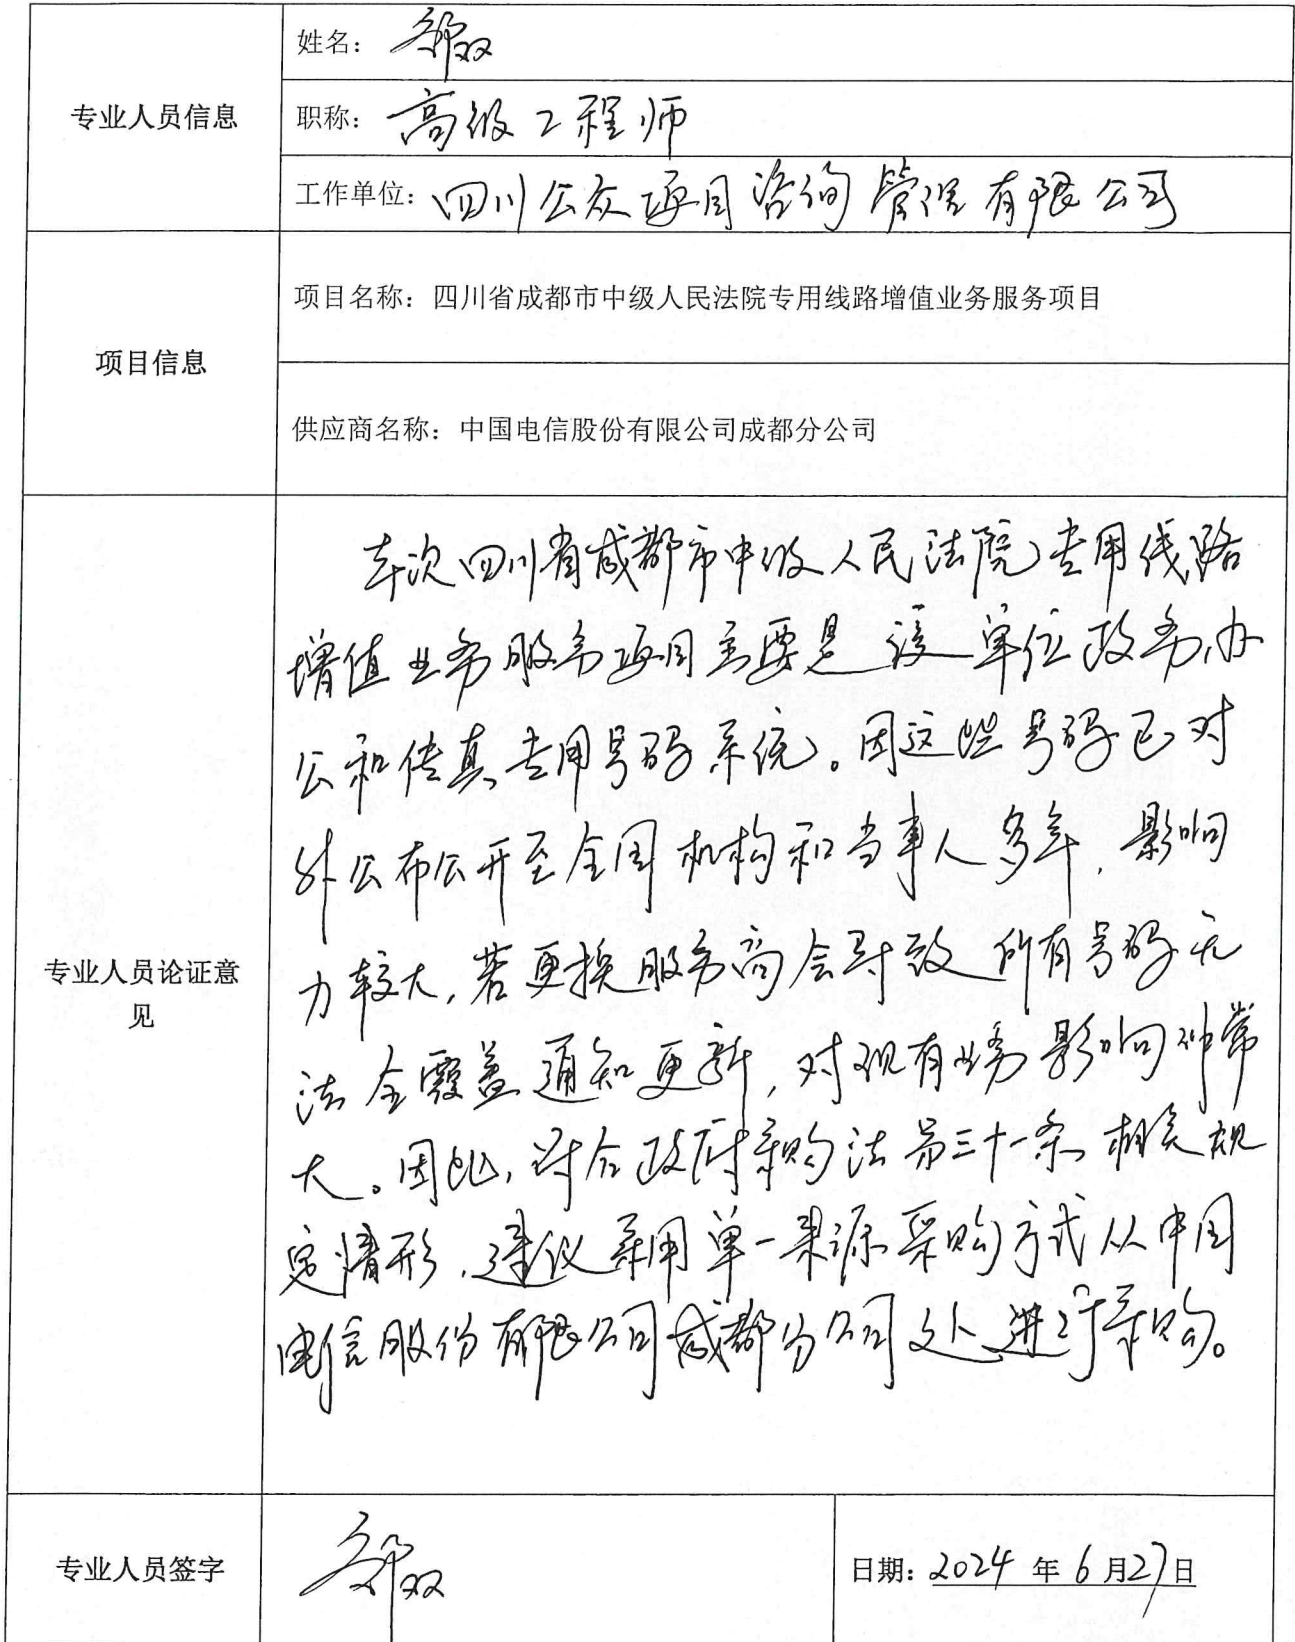 专业人员信息
姓名：邹双
职称：高级工程师
工作单位：四川公众项目咨询管理有限公司
项目信息
项目名称：四川省成都市中级人民法院专用线路增值业务服务项目
供应商名称：中国电信股份有限公司成都分公司
专业人员论证意
见
本次四川省成都市中级人民法院专用线路
增值业务服务项目主要是该单位政务办
公和传真专用号码系统。因这些号码已对
外公布公开至全国机构和当事人多年，影响
力较大，若更换服务商会导致所有号码无
法全覆盖通知更新，对现有业务影响非常
大。因此，符合政府采购法第三十一条相关规
定情形，建议采用单一来源采购方式从中国
电信股份有限公司成都分公司处进行采购。
专业人员签字
邹双
日期：2024年6月27日